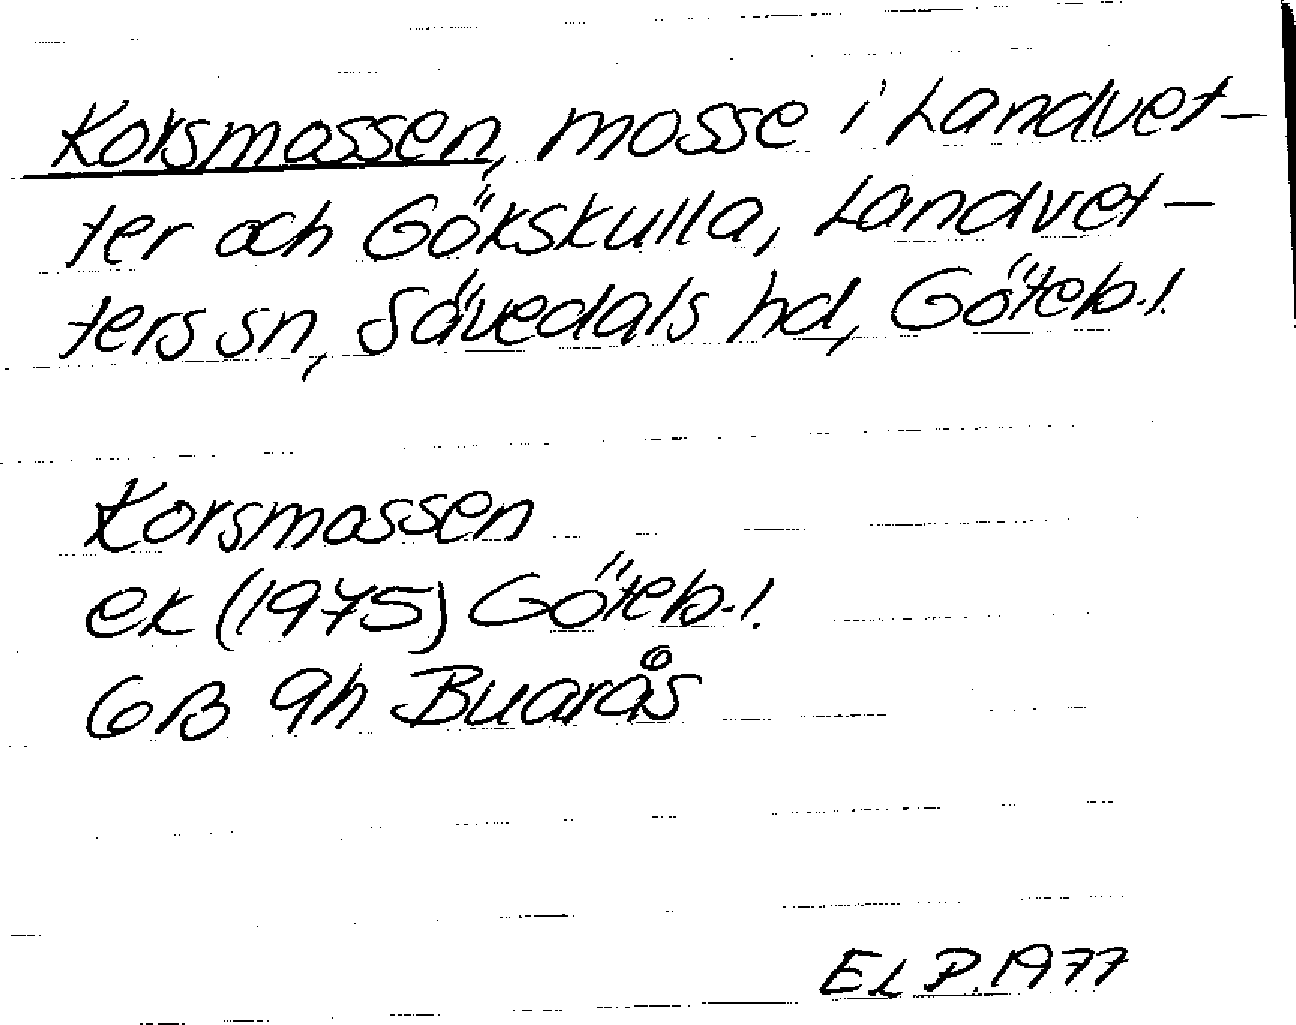 Korsmossen, mosse i Landvet-
ter och Gökskulla, Landvet-
ters sn, Sävedals hd, Göteb.l.
Korsmossen
ek (1975) Göteb.l.
6B 9h Buarås
EL P. 1977